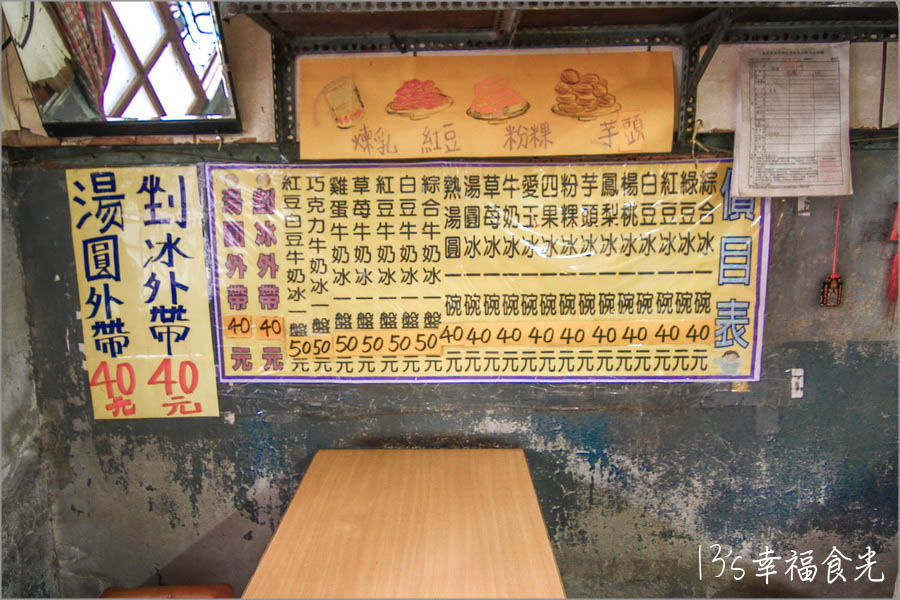 煉乳 紅豆 粉粿 芋頭
價目表
綜合冰一碗40元
綠豆冰一碗40元
紅豆冰一碗40元
白豆冰一碗40元
楊桃冰一碗40元
鳳梨冰一碗40元
芋頭冰一碗40元
粉粿冰一碗40元
四果冰一碗40元
愛玉冰一碗40元
牛奶冰一碗40元
草莓冰一碗40元
湯圓冰一碗40元
熱湯圓一碗40元
綜合牛奶冰一盤50元
白豆牛奶冰一盤50元
紅豆牛奶冰一盤50元
草莓牛奶冰一盤50元
雞蛋牛奶冰一盤50元
巧克力牛奶冰一盤50元
紅豆白豆牛奶冰一盤50元
剉冰外帶40元
湯圓外帶40元
剉冰外帶40元
湯圓外帶40元
13's幸福食光